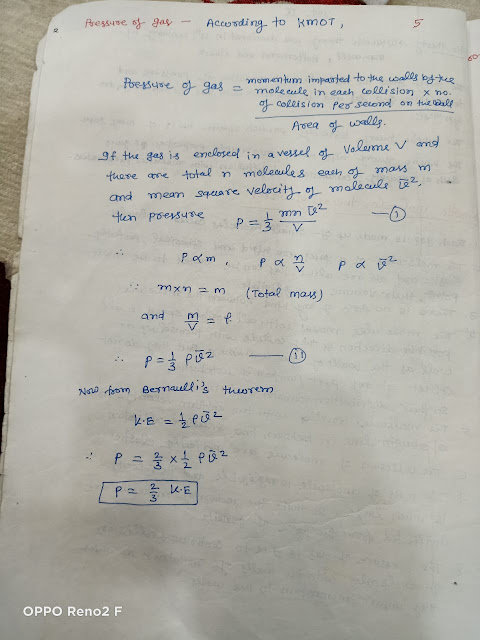 Pressure of gas — According to KMOT, 5
Pressure of gas = momentum imparted to the walls by the
molecule in each collision × no.
of collision per second on the wall
Area of walls.
If the gas is enclosed in a vessel of volume V and
there are total n molecules each of mass m
and mean square velocity of molecule v̄²,
then pressure P = 1/3 mn v̄²/V — (i)
∴ P ∝ m , P ∝ n/V P ∝ v̄²
∵ m×n = m (Total mass)
and m/V = ρ
∴ P = 1/3 ρ v̄² — (ii)
Now from Bernaulli's theorem
K.E = 1/2 ρ v̄²
∵ P = 2/3 × 1/2 ρ v̄²
P = 2/3 K.E
OPPO Reno2 F